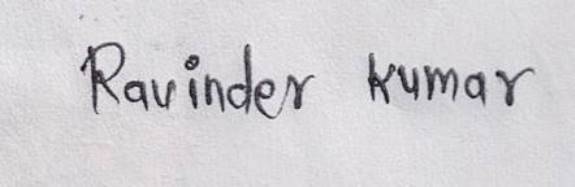 Ravinder Kumar